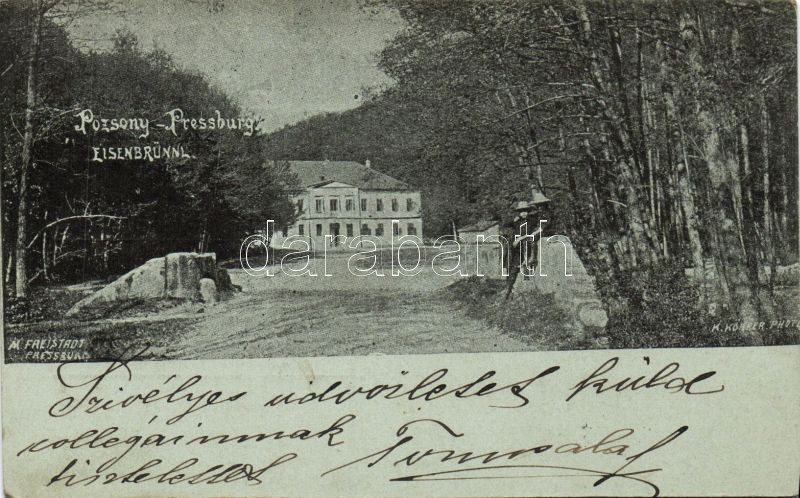 Pozsony - Pressburg.
EISENBRÜNNL.
darabanth
M. FREISTADT
PRESSBURG
K. KÖRPER PHOT
Szivélyes üdvözletet küld
collegáinmak
tisztelettel